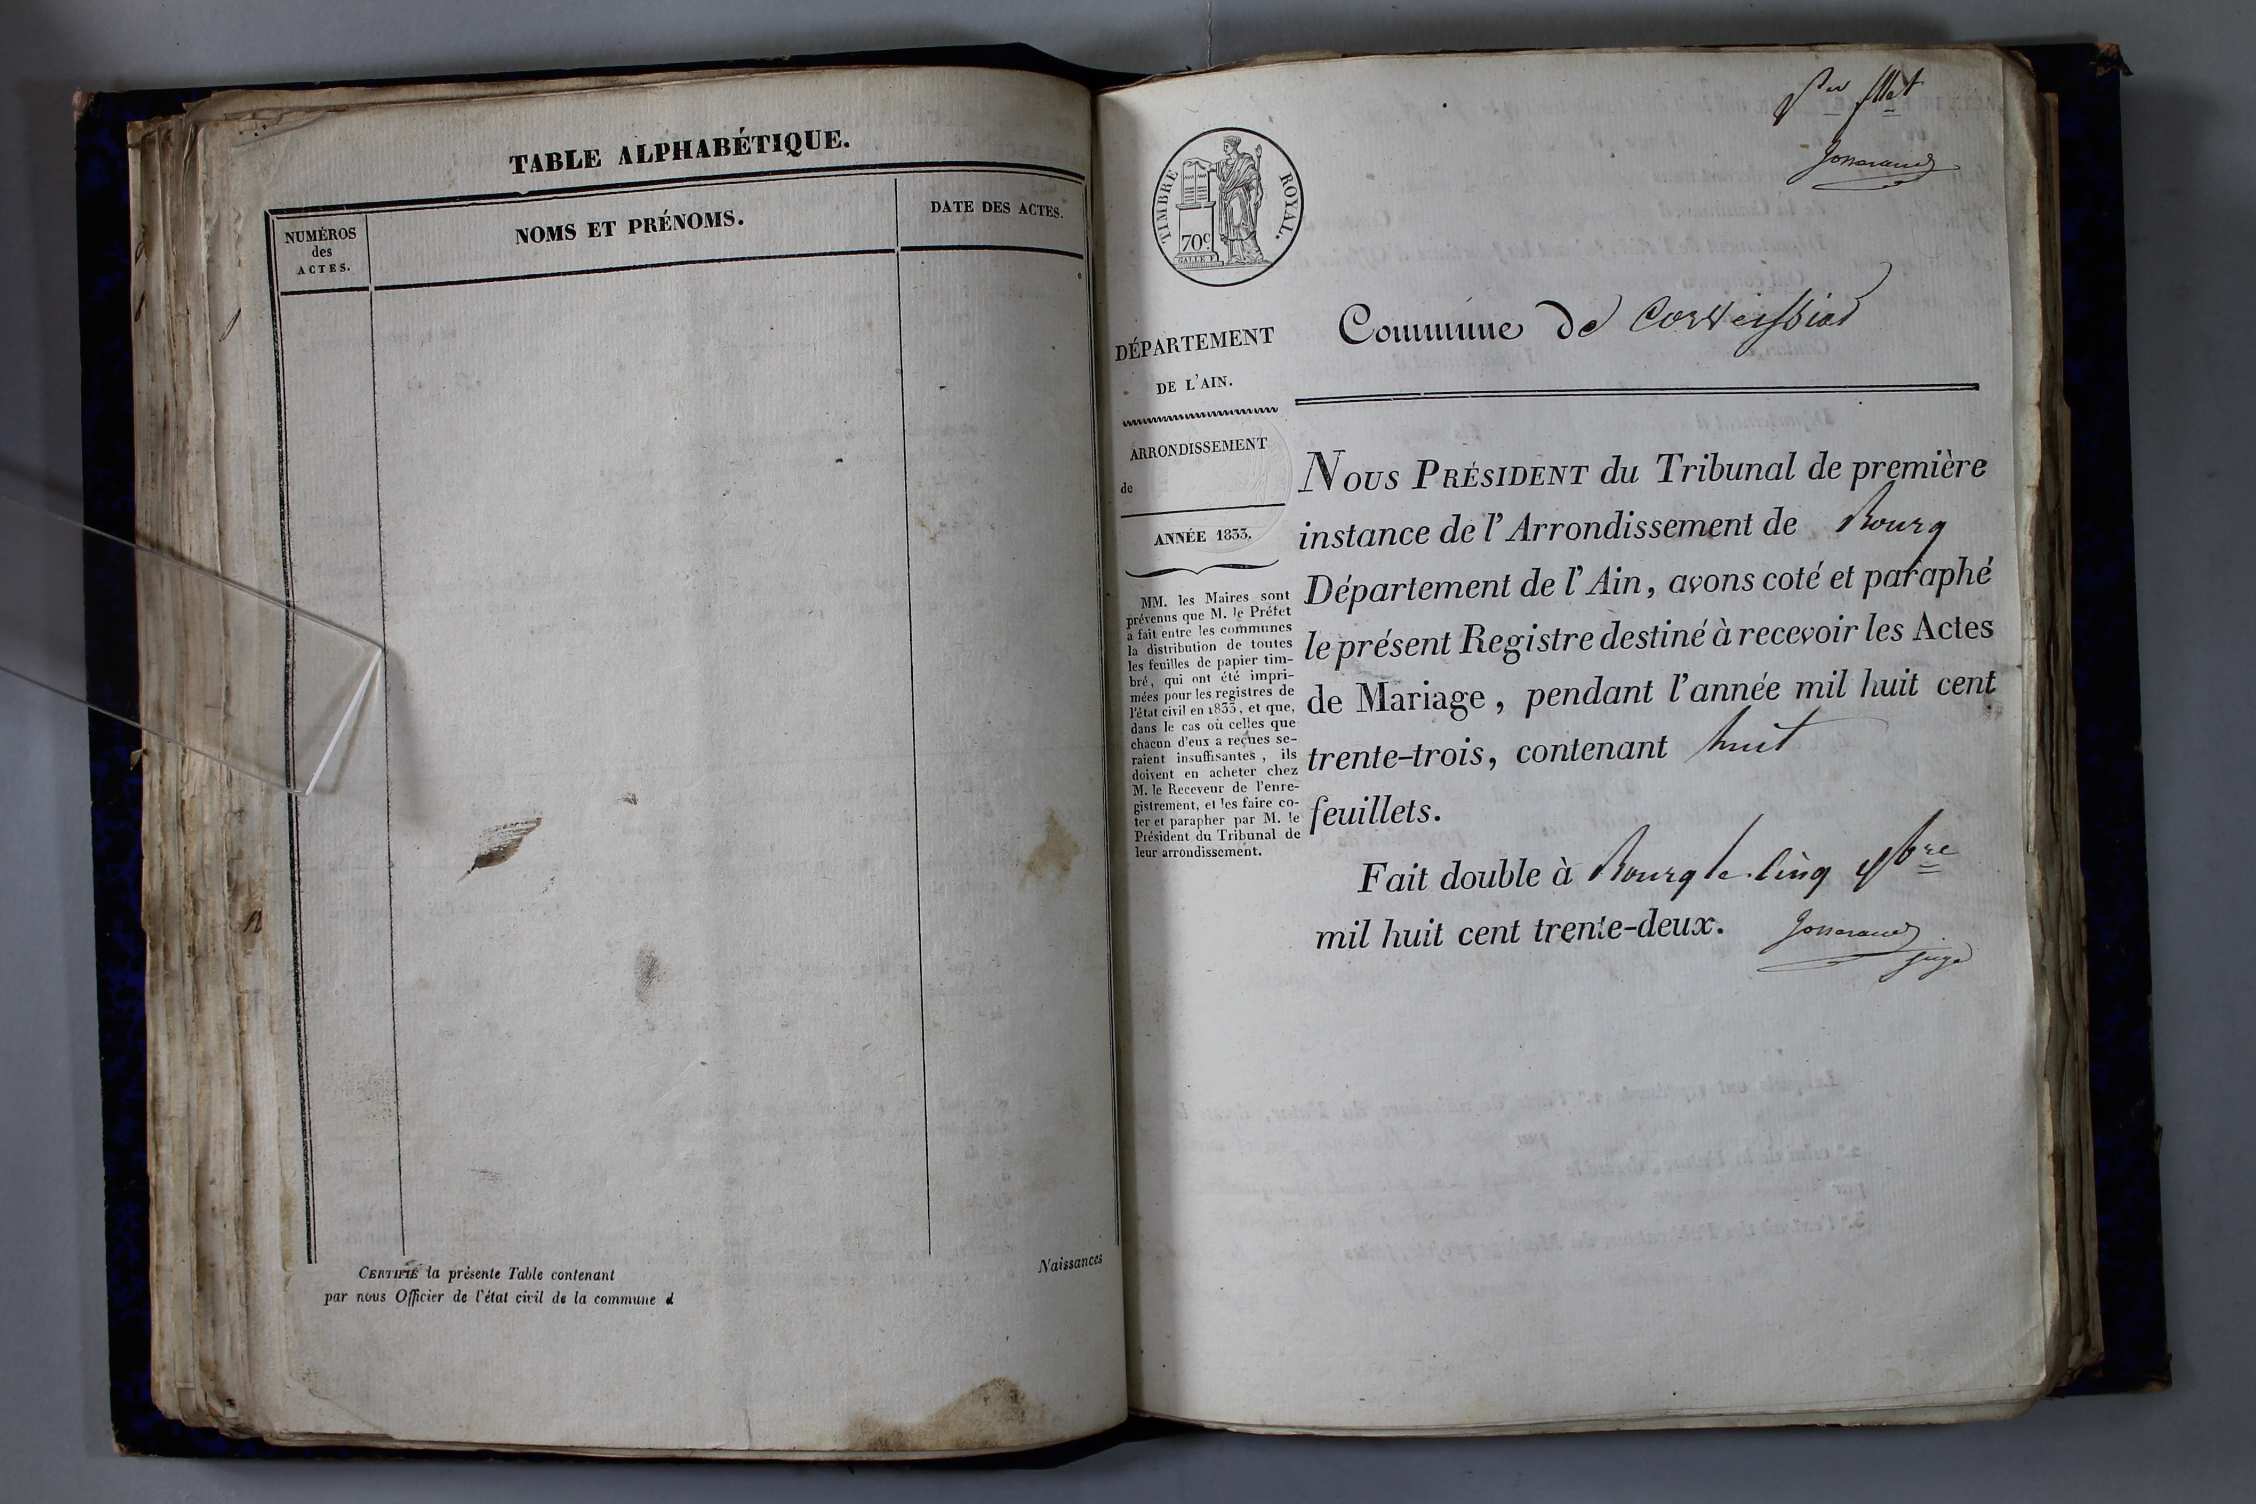 TABLE ALPHABÉTIQUE.
NUMÉROS
des
ACTES.
NOMS ET PRÉNOMS.
DATE DES ACTES.
CERTIFIÉ la présente Table contenant
par nous Officier de l'état civil de la commune d
Naissances
1er fllet
Josserand
TIMBRE ROYAL.
70c
GALLE F.
DÉPARTEMENT
DE L'AIN.
ARRONDISSEMENT
de
ANNÉE 1833.
MM. les Maires sont
prévenus que M. le Préfet
a fait entre les communes
la distribution de toutes
les feuilles de papier tim-
bré, qui ont été impri-
mées pour les registres de
l'état civil en 1833, et que,
dans le cas où celles que
chacun d'eux a reçues se-
raient insuffisantes, ils
doivent en acheter chez
M. le Receveur de l'enre-
gistrement, et les faire co-
ter et parapher par M. le
Président du Tribunal de
leur arrondissement.
Commune de Corveissiat
NOUS PRÉSIDENT du Tribunal de première
instance de l'Arrondissement de Bourg
Département de l'Ain, avons coté et paraphé
le présent Registre destiné à recevoir les Actes
de Mariage, pendant l'année mil huit cent
trente-trois, contenant huit
feuillets.
Fait double à Bourg le cinq
mil huit cent trente-deux.
Josserand
juge